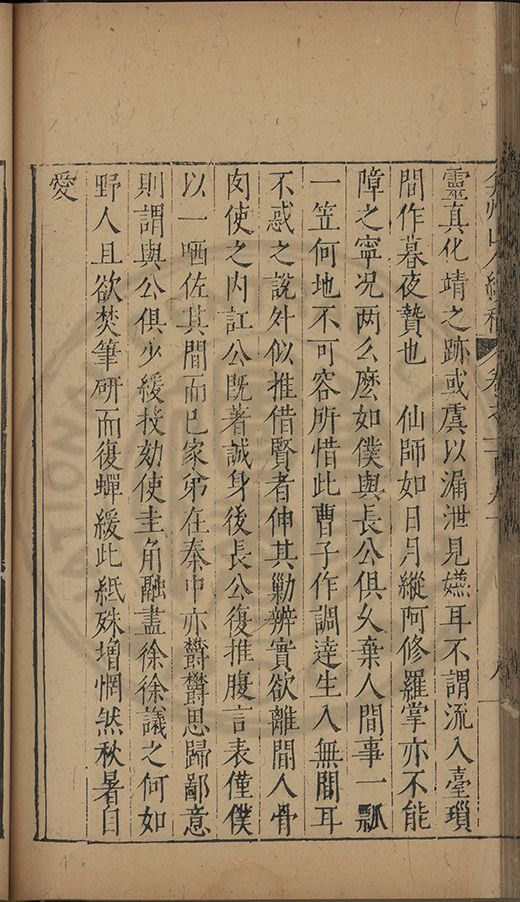 靈真化靖之跡或虞以漏泄見嫌耳不謂流入臺瑣
間作暮夜贄也　仙師如日月縱阿修羅掌亦不能
障之寧况两么麽如僕與長公俱久棄人間事一瓢
一笠何地不可容所惜此曹子作調達生入無間耳
不惑之說外似推借賢者伸其勦辨實欲離間人骨
肉使之内訌公既著誠身後長公復推腹言表僅僕
以一哂佐其間而已家弟在秦中亦欝欝思歸鄙意
則謂與公俱少緩投劾使圭角融盡徐徐議之何如
野人且欲焚筆研而復蟬緩此紙殊增惘然秋暑自
愛